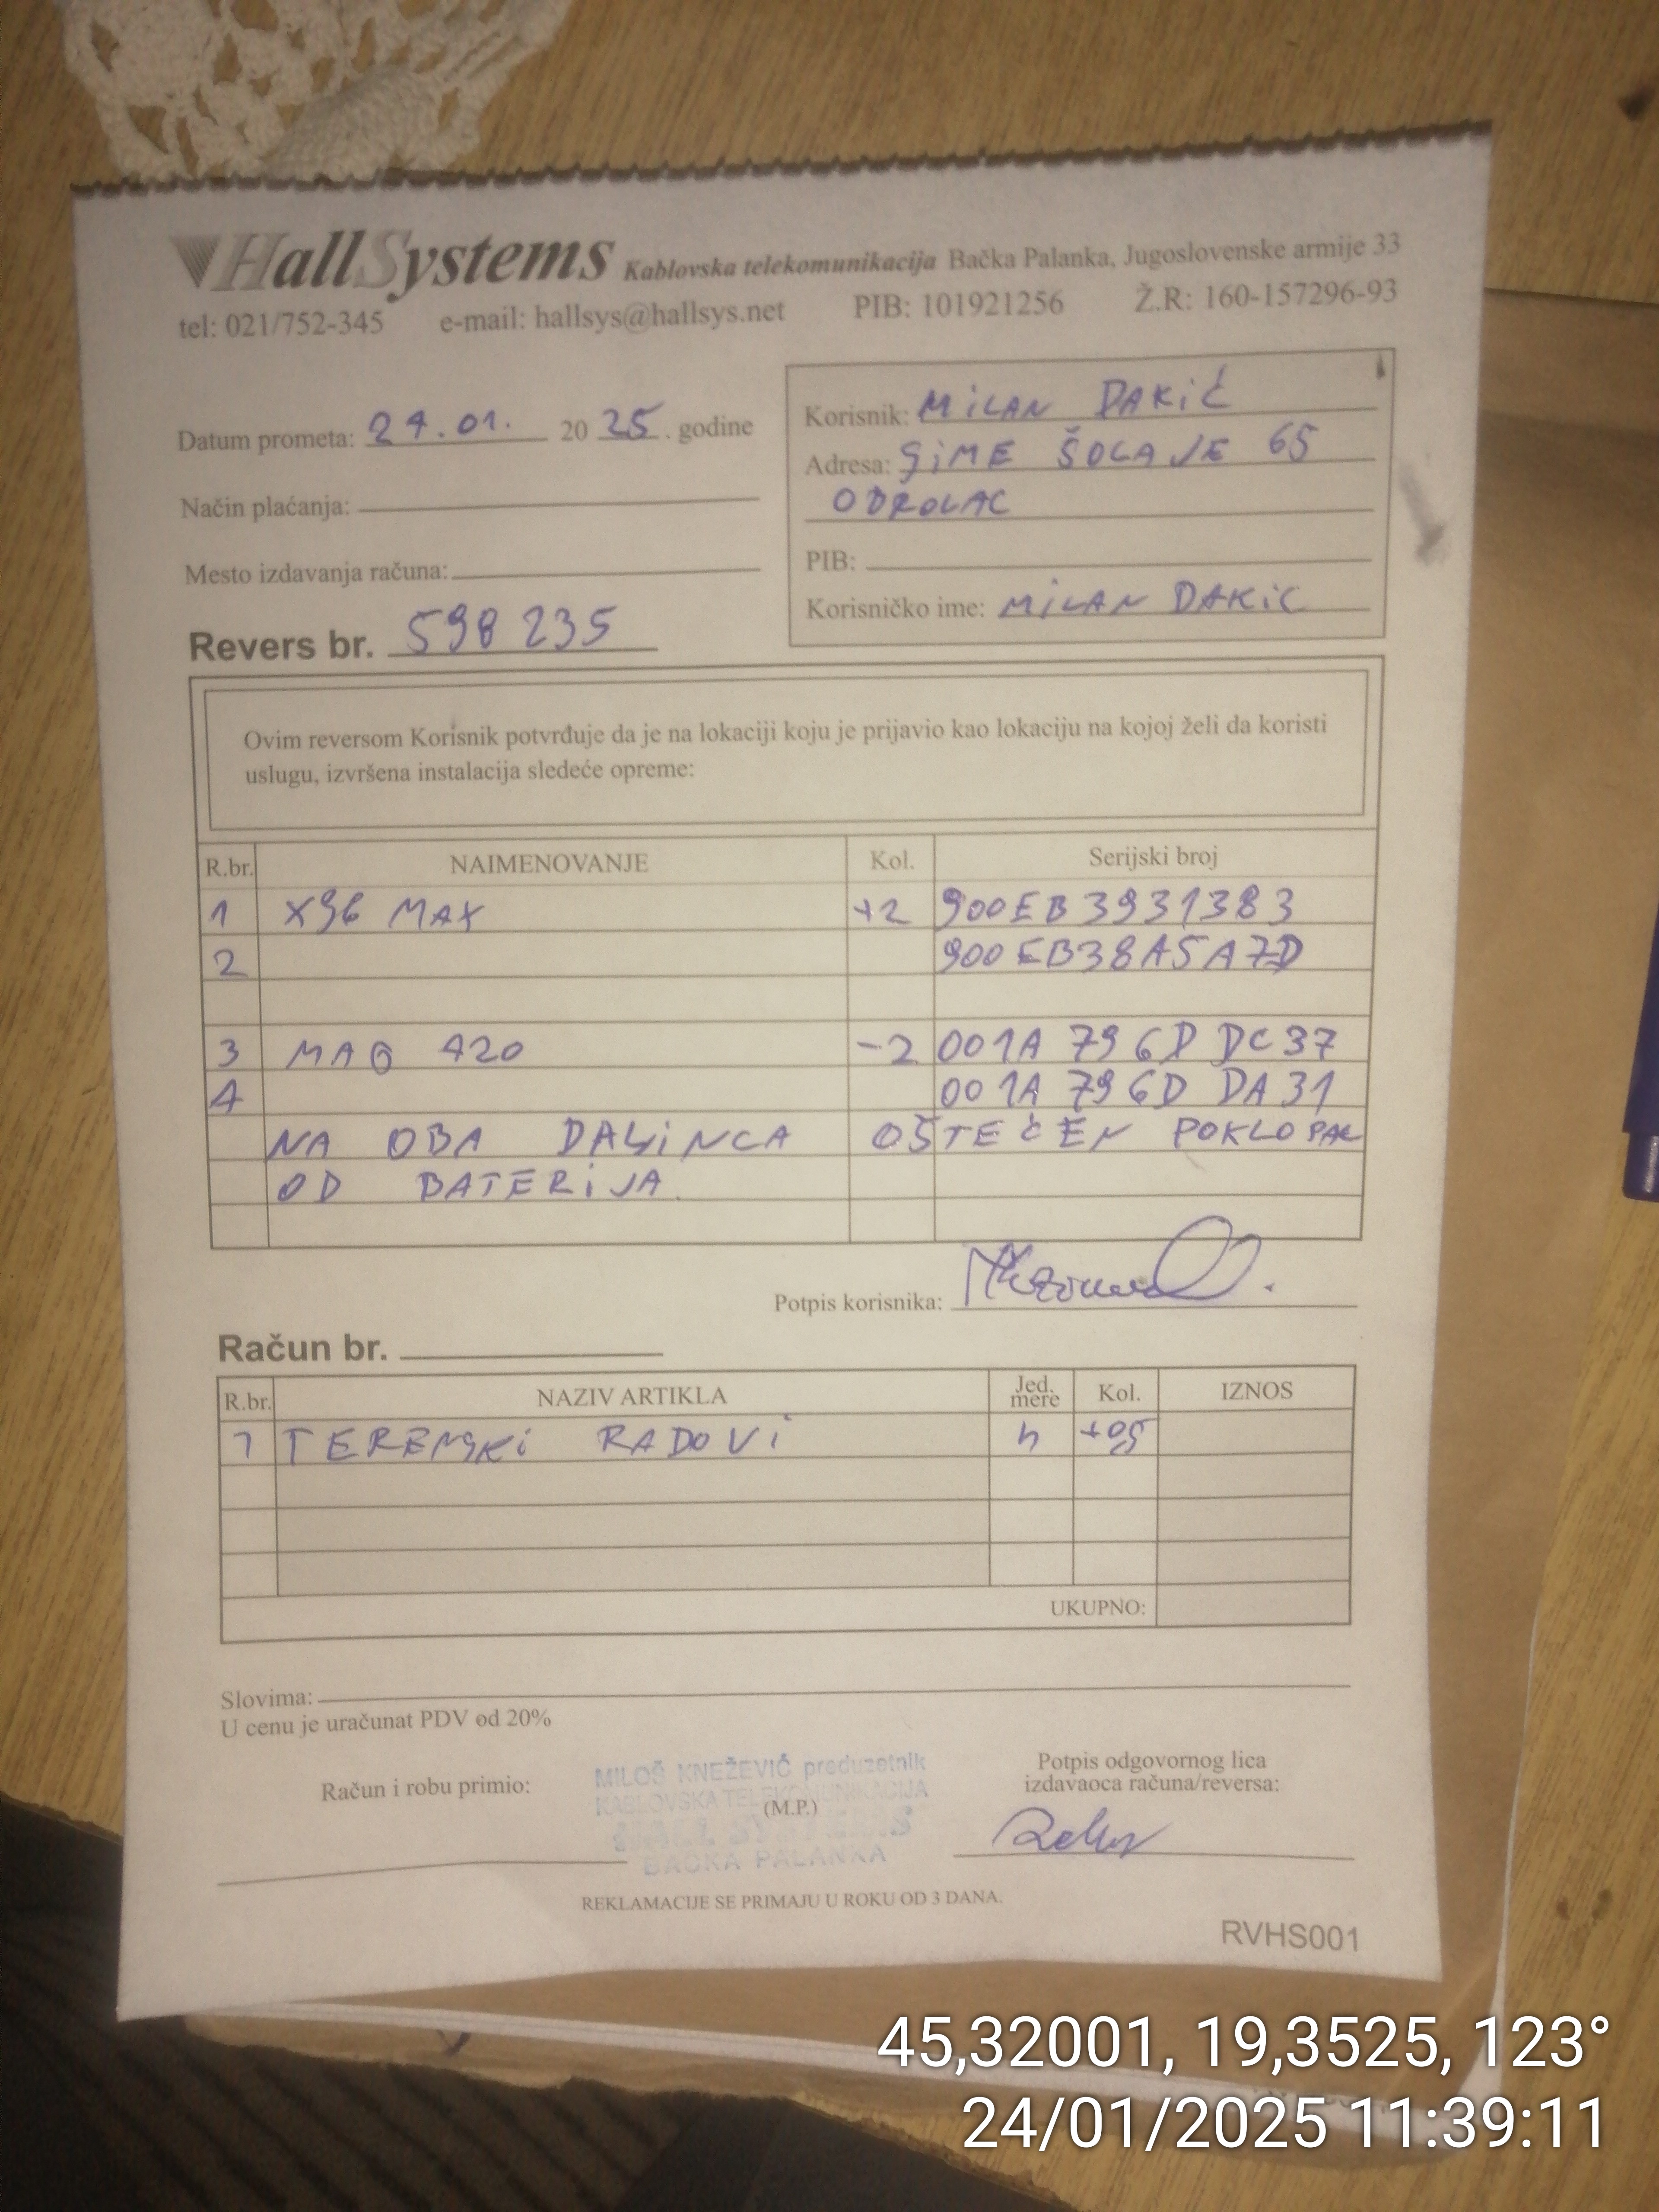 HallSystems Kablovska telekomunikacija Bačka Palanka, Jugoslovenske armije 33
tel: 021/752-345 e-mail: hallsys@hallsys.net PIB: 101921256 Ž.R: 160-157296-93
Datum prometa: 24.01. 20 25. godine
Način plaćanja:
Mesto izdavanja računa:
Revers br. 598 235
Korisnik: MiLAN DAKiĆ
Adresa: SiME ŠOLAJE 65
ODROLAC
PIB:
Korisničko ime: MiLAN DAKiC
Ovim reversom Korisnik potvrđuje da je na lokaciji koju je prijavio kao lokaciju na kojoj želi da koristi
uslugu, izvršena instalacija sledeće opreme:
R.br. NAIMENOVANJE Kol. Serijski broj
1 X96 MAX +2 900EB3931383
2 900EB38A5A7D
3 MAG 420 -2 001A 79 6D DC 37
4 001A 79 6D DA 31
NA OBA DALJiNCA OŠTEĆEN POKLOPAC
OD BATERiJA.
Potpis korisnika:
Račun br.
R.br. NAZIV ARTIKLA Jed. mere Kol. IZNOS
1 TERENSKi RADOVi h +05
UKUPNO:
Slovima:
U cenu je uračunat PDV od 20%
Račun i robu primio:
MILOŠ KNEŽEVIĆ preduzetnik
KABLOVSKA TELEKOMUNIKACIJA
(M.P.)
HALL SYSTEMS
BAČKA PALANKA
Potpis odgovornog lica
izdavaoca računa/reversa:
REKLAMACIJE SE PRIMAJU U ROKU OD 3 DANA.
RVHS001
45,32001, 19,3525, 123°
24/01/2025 11:39:11